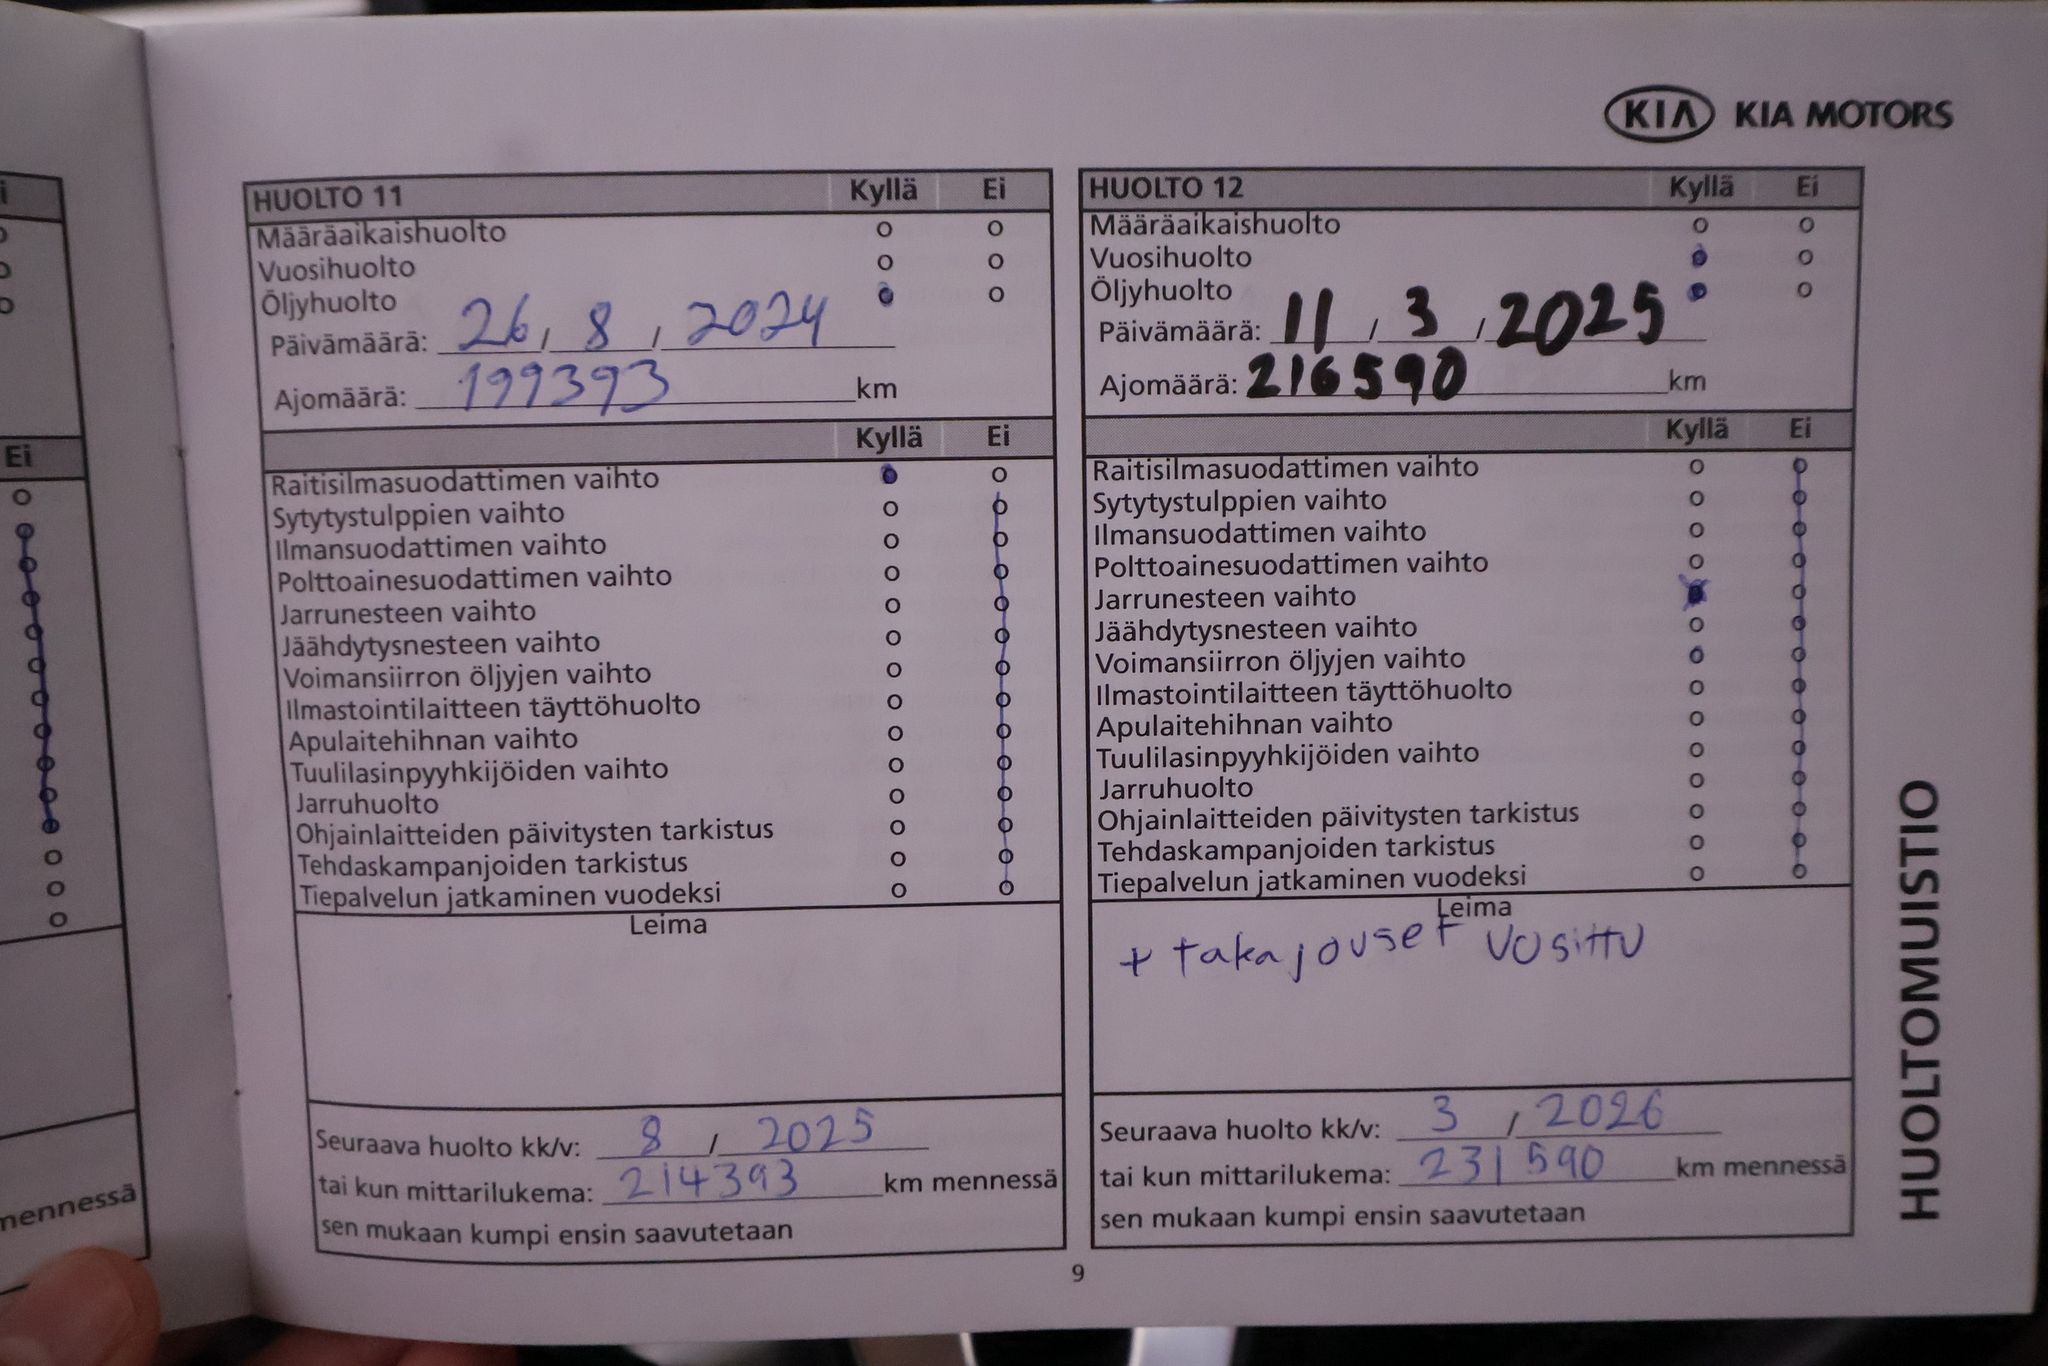 i
Ei
mennessä
KIA KIA MOTORS
HUOLTO 11 Kyllä Ei
Määräaikaishuolto
Vuosihuolto
Öljyhuolto
Päivämäärä: 26 / 8 / 2024
Ajomäärä: 199393 km
Kyllä Ei
Raitisilmasuodattimen vaihto
Sytytystulppien vaihto
Ilmansuodattimen vaihto
Polttoainesuodattimen vaihto
Jarrunesteen vaihto
Jäähdytysnesteen vaihto
Voimansiirron öljyjen vaihto
Ilmastointilaitteen täyttöhuolto
Apulaitehihnan vaihto
Tuulilasinpyyhkijöiden vaihto
Jarruhuolto
Ohjainlaitteiden päivitysten tarkistus
Tehdaskampanjoiden tarkistus
Tiepalvelun jatkaminen vuodeksi
Leima
Seuraava huolto kk/v: 8 / 2025
tai kun mittarilukema: 214393 km mennessä
sen mukaan kumpi ensin saavutetaan
HUOLTO 12 Kyllä Ei
Määräaikaishuolto
Vuosihuolto
Öljyhuolto
Päivämäärä: 11 / 3 / 2025
Ajomäärä: 216590 km
Kyllä Ei
Raitisilmasuodattimen vaihto
Sytytystulppien vaihto
Ilmansuodattimen vaihto
Polttoainesuodattimen vaihto
Jarrunesteen vaihto
Jäähdytysnesteen vaihto
Voimansiirron öljyjen vaihto
Ilmastointilaitteen täyttöhuolto
Apulaitehihnan vaihto
Tuulilasinpyyhkijöiden vaihto
Jarruhuolto
Ohjainlaitteiden päivitysten tarkistus
Tehdaskampanjoiden tarkistus
Tiepalvelun jatkaminen vuodeksi
Leima
+ takajouset uusittu
Seuraava huolto kk/v: 3 / 2026
tai kun mittarilukema: 231590 km mennessä
sen mukaan kumpi ensin saavutetaan
9
HUOLTOMUISTIO